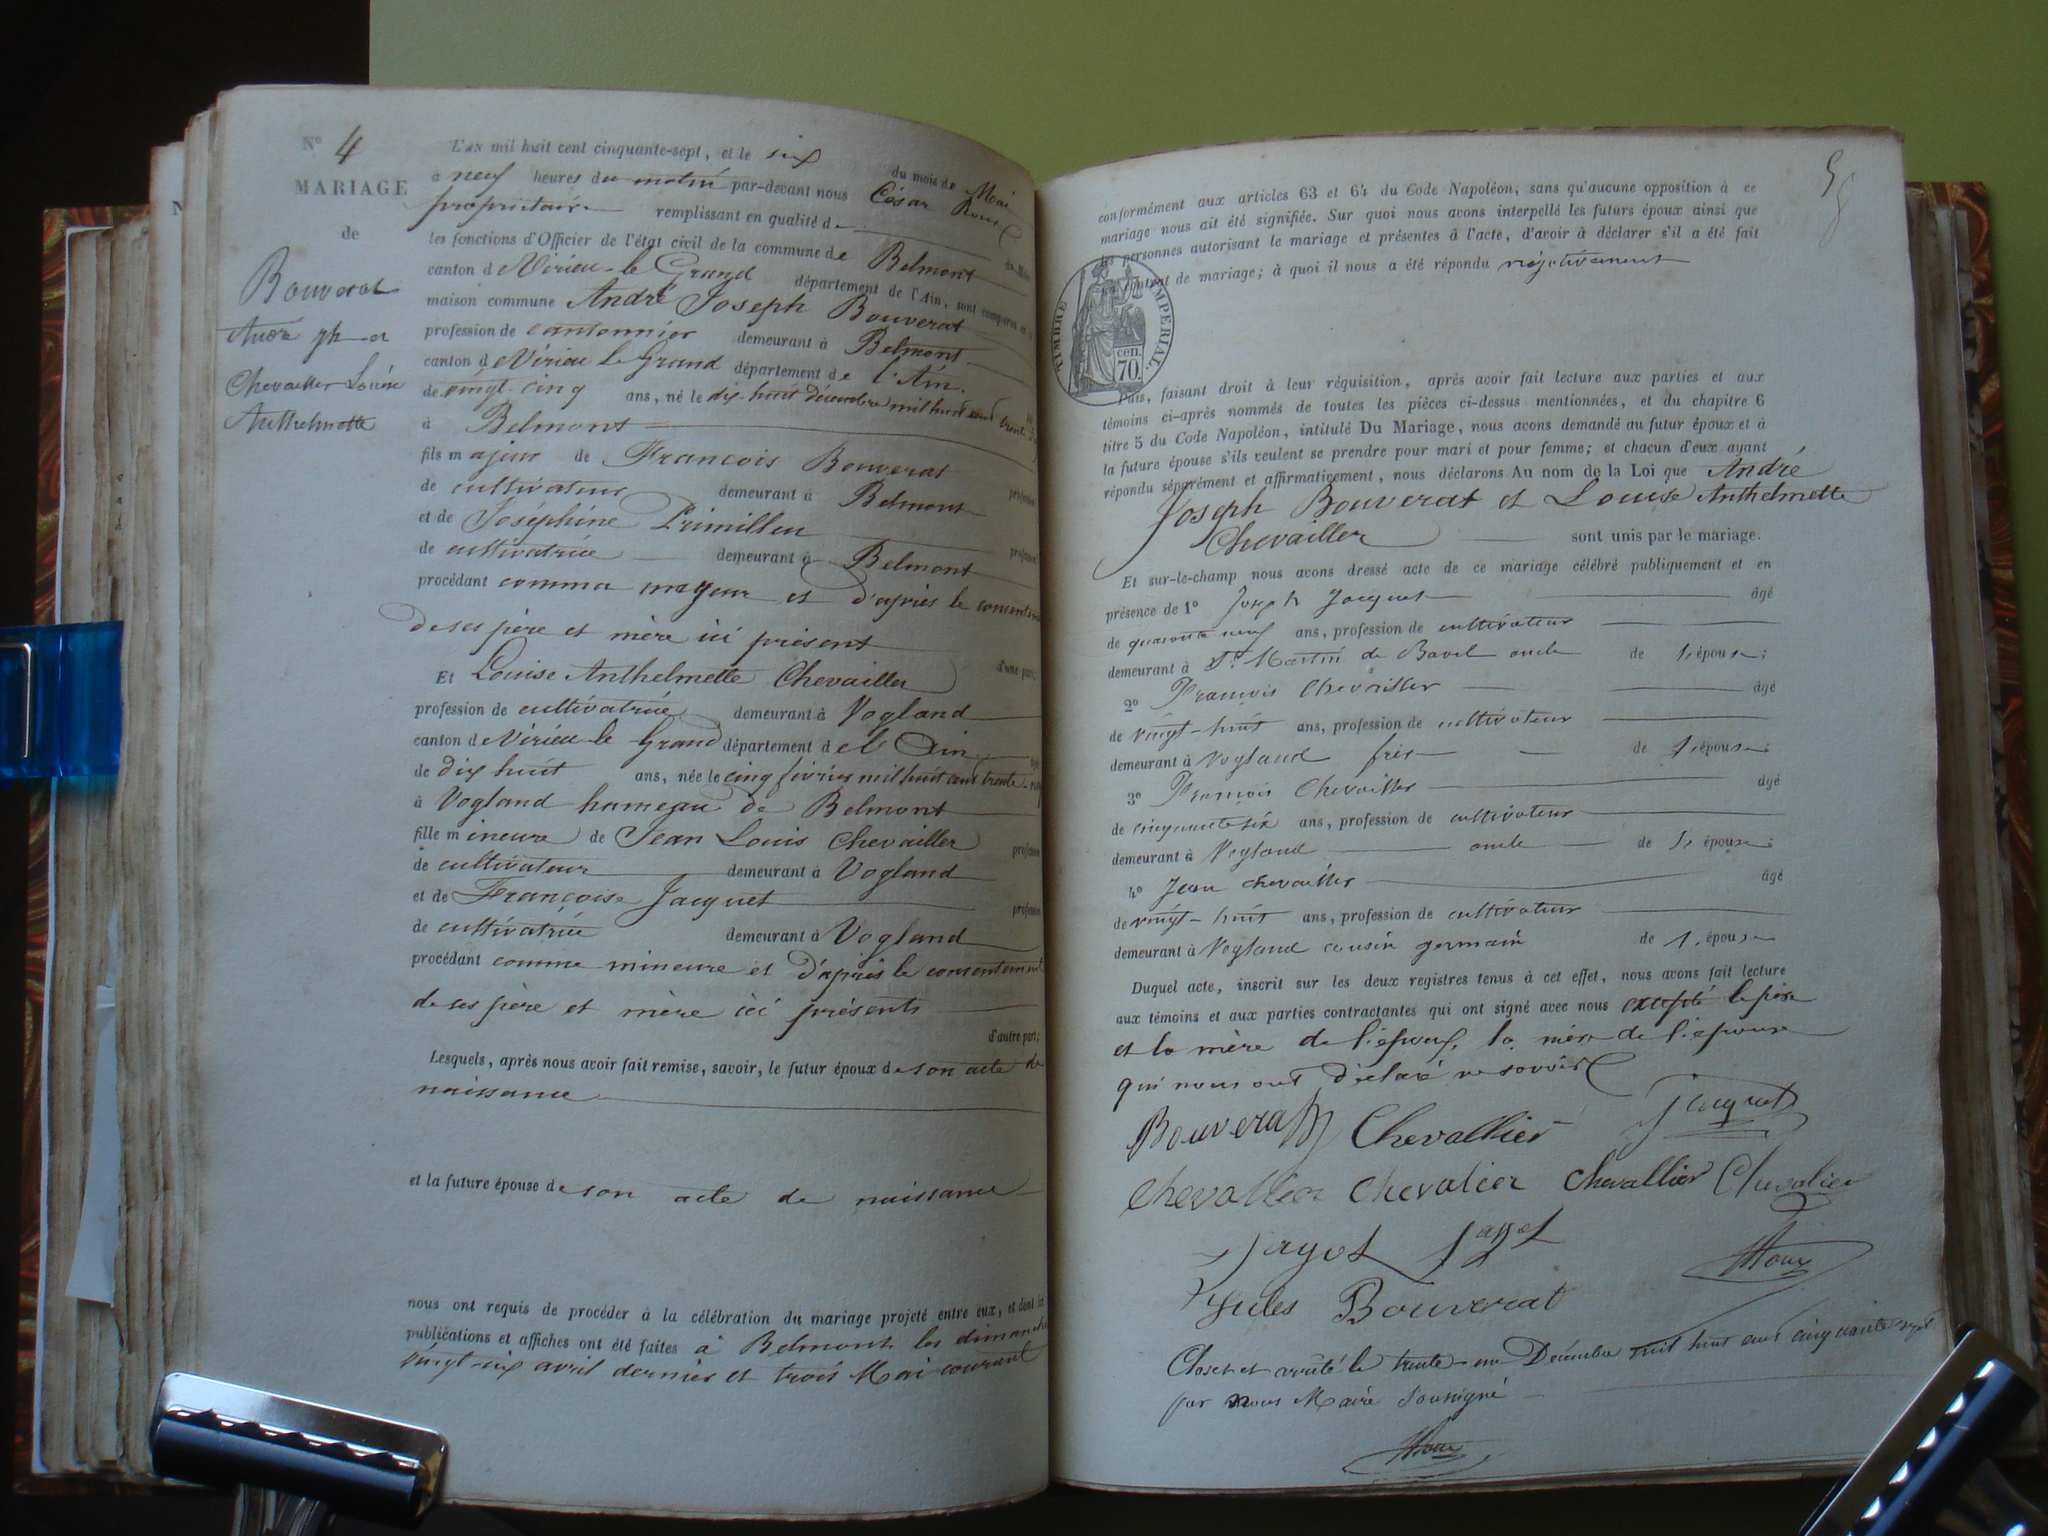 N° 4
MARIAGE
de
Bouverat
André Jph et
Chevailler Louise
Anthelmette
L'AN mil huit cent cinquante-sept, et le six du mois de Mai
à neuf heures du matin par-devant nous César Roux
propriétaire remplissant en qualité de
les fonctions d'Officier de l'état civil de la commune de Belmont
canton de Virieu-le Grand département de l'Ain, sont comparus en
maison commune André Joseph Bouverat
profession de cantonnier demeurant à Belmont
canton de Virieu le Grand département de l'Ain.
de vingt-cinq ans, né le dix-huit décembre mil huit cent trente
à Belmont
fils majeur de François Bouverat
de cultivateur demeurant à Belmont profession
et de Joséphine Primillieu profession
de cultivatrice demeurant à Belmont
procédant comme majeur et d'après le consentement
de ses père et mère ici présent
d'une part,
Et Louise Anthelmette Chevailler
profession de cultivatrice demeurant à Vogland
canton de Virieu-le Grand département de l'Ain
de dix huit ans, née le cinq février mil huit cent trente-neuf
à Vogland hameau de Belmont
fille mineure de Jean Louis Chevailler profession
de cultivateur demeurant à Vogland
et de Françoise Jacquet profession
de cultivatrice demeurant à Vogland
procédant comme mineure et d'après le consentement
de ses père et mère ici présents
d'autre part;
Lesquels, après nous avoir fait remise, savoir, le futur époux de son acte de
naissance
et la future épouse de son acte de naissance
nous ont requis de procéder à la célébration du mariage projeté entre eux, et dont les
publications et affiches ont été faites à Belmont les dimanches
vingt-six avril dernier et trois Mai courant
conformément aux articles 63 et 64 du Code Napoléon, sans qu'aucune opposition à ce
mariage nous ait été signifiée. Sur quoi nous avons interpellé les futurs époux ainsi que
les personnes autorisant le mariage et présentes à l'acte, d'avoir à déclarer s'il a été fait
un contrat de mariage; à quoi il nous a été répondu négativement
TIMBRE IMPERIAL.
70. cen.
Puis, faisant droit à leur réquisition, après avoir fait lecture aux parties et aux
témoins ci-après nommés de toutes les pièces ci-dessus mentionnées, et du chapitre 6
titre 5 du Code Napoléon, intitulé Du Mariage, nous avons demandé au futur époux et à
la future épouse s'ils veulent se prendre pour mari et pour femme; et chacun d'eux ayant
répondu séparément et affirmativement, nous déclarons Au nom de la Loi que André
Joseph Bouverat et Louise Anthelmette
Chevailler sont unis par le mariage.
Et sur-le-champ nous avons dressé acte de ce mariage célébré publiquement et en
présence de 1° Joseph Jacquet âgé
de quarante neuf ans, profession de cultivateur
demeurant à St Martin de Bavel oncle de l'épouse;
2° François Chevailler âgé
de vingt-huit ans, profession de cultivateur
demeurant à Vogland frère de l'épouse;
3° François Chevailler âgé
de cinquante six ans, profession de cultivateur
demeurant à Vogland oncle de l'épouse;
4° Jean Chevailler âgé
de vingt-huit ans, profession de cultivateur
demeurant à Vogland cousin germain de l'épouse
Duquel acte, inscrit sur les deux registres tenus à cet effet, nous avons fait lecture
aux témoins et aux parties contractantes qui ont signé avec nous excepté le père
et la mère de l'époux, la mère de l'épouse
qui nous ont déclaré ne savoir
Bouverat Chevallier Jacquet
Chevallier Chevalier Chevallier Chevalier
Jayet Jayet
Roux
Jules Bouverat
Clos et arrêté le trente-un Décembre mil huit cent cinquante sept
par nous Maire soussigné
Roux